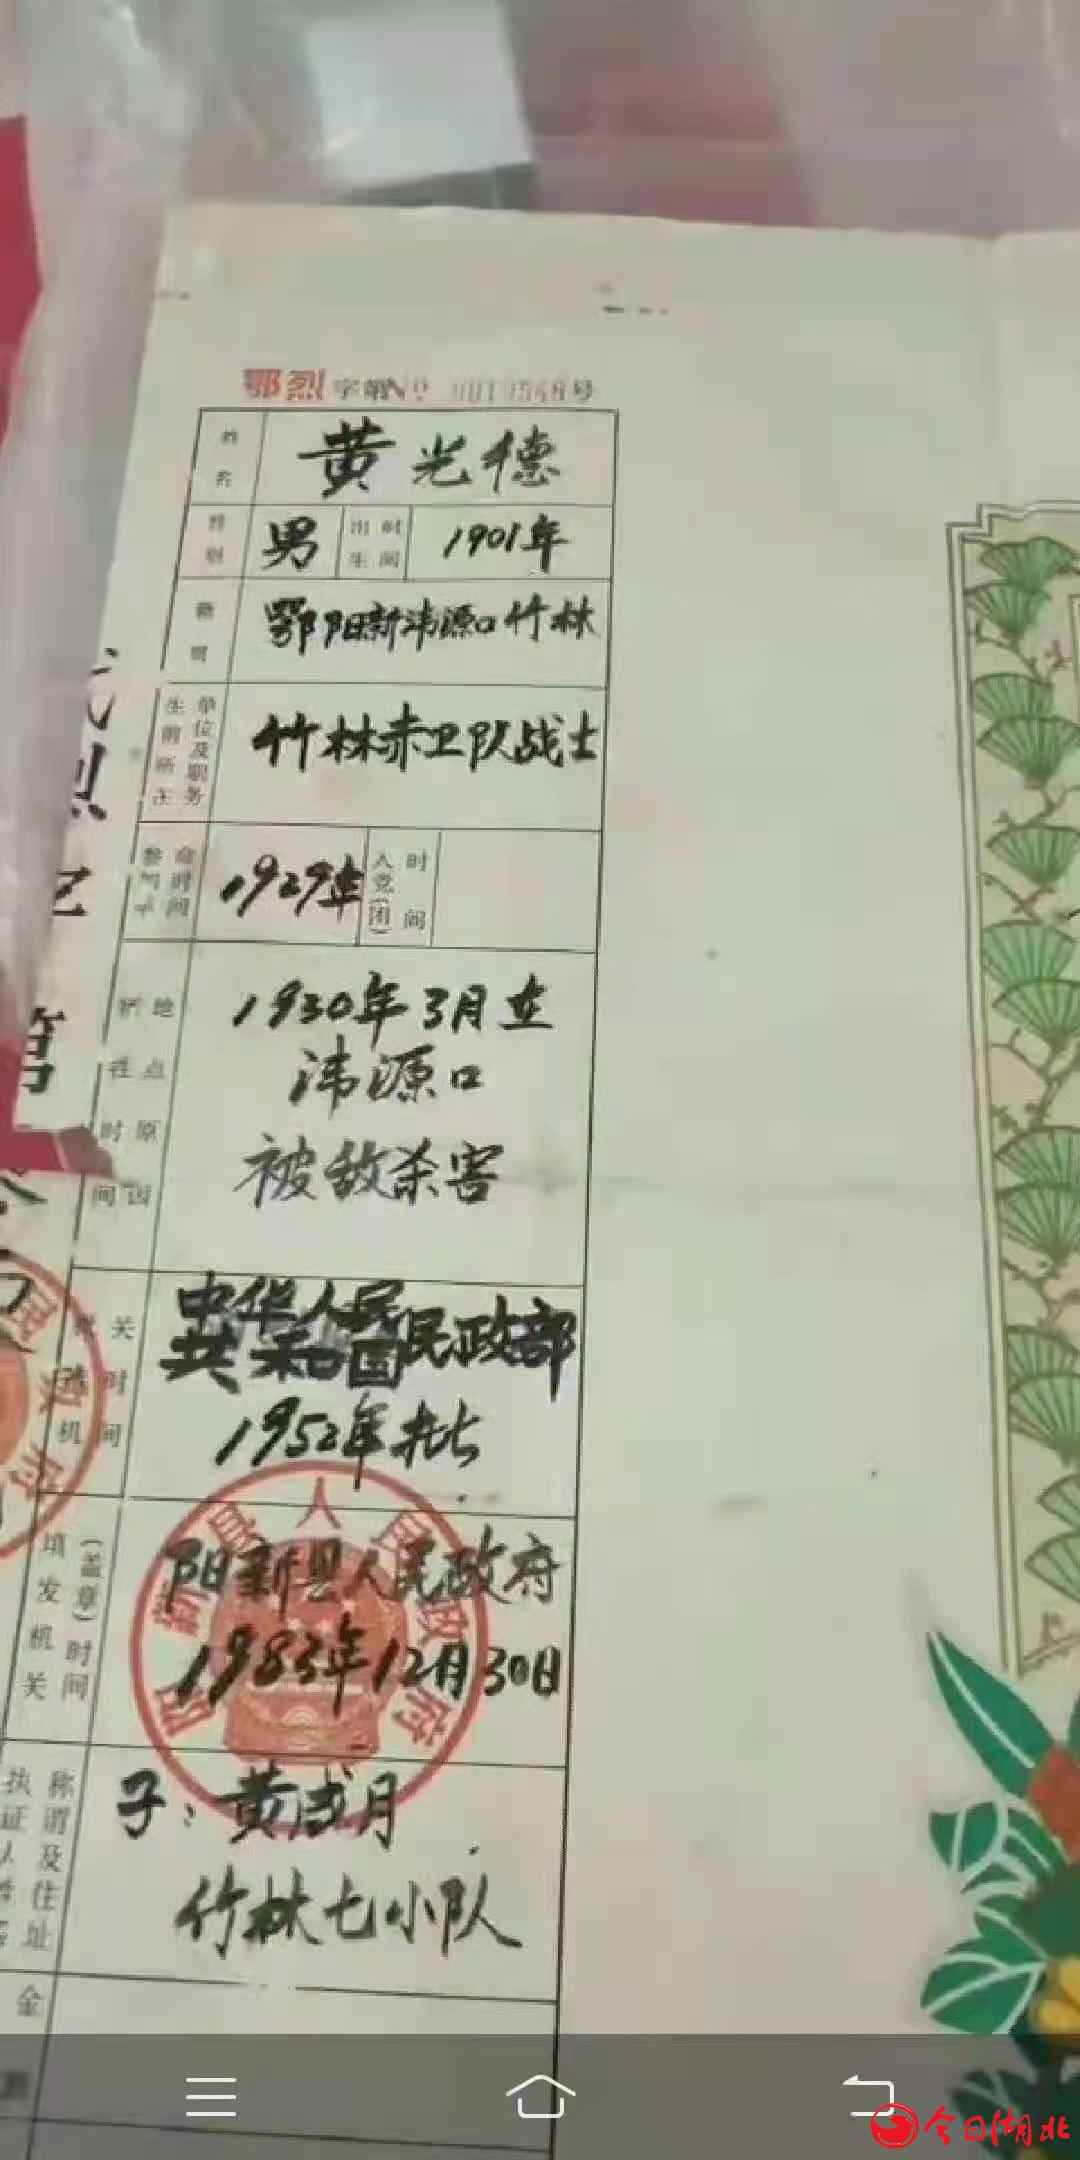 鄂烈字第No 号
姓名 黄光德
性别 男 出生时间 1901年
籍贯 鄂阳新沣源口竹林
生前所在单位及职务 竹林赤卫队战士
1929年 入党(团)时间
牺牲时间地点原因
1930年3月在
沣源口
被敌杀害
批准机关时间
中华人民共和国民政部
1952年批
填发机关(盖章)时间
阳新县人民政府
1983年12月30日
阳新县人民政府
子:黄成月
竹林七小队
金
今日湖北